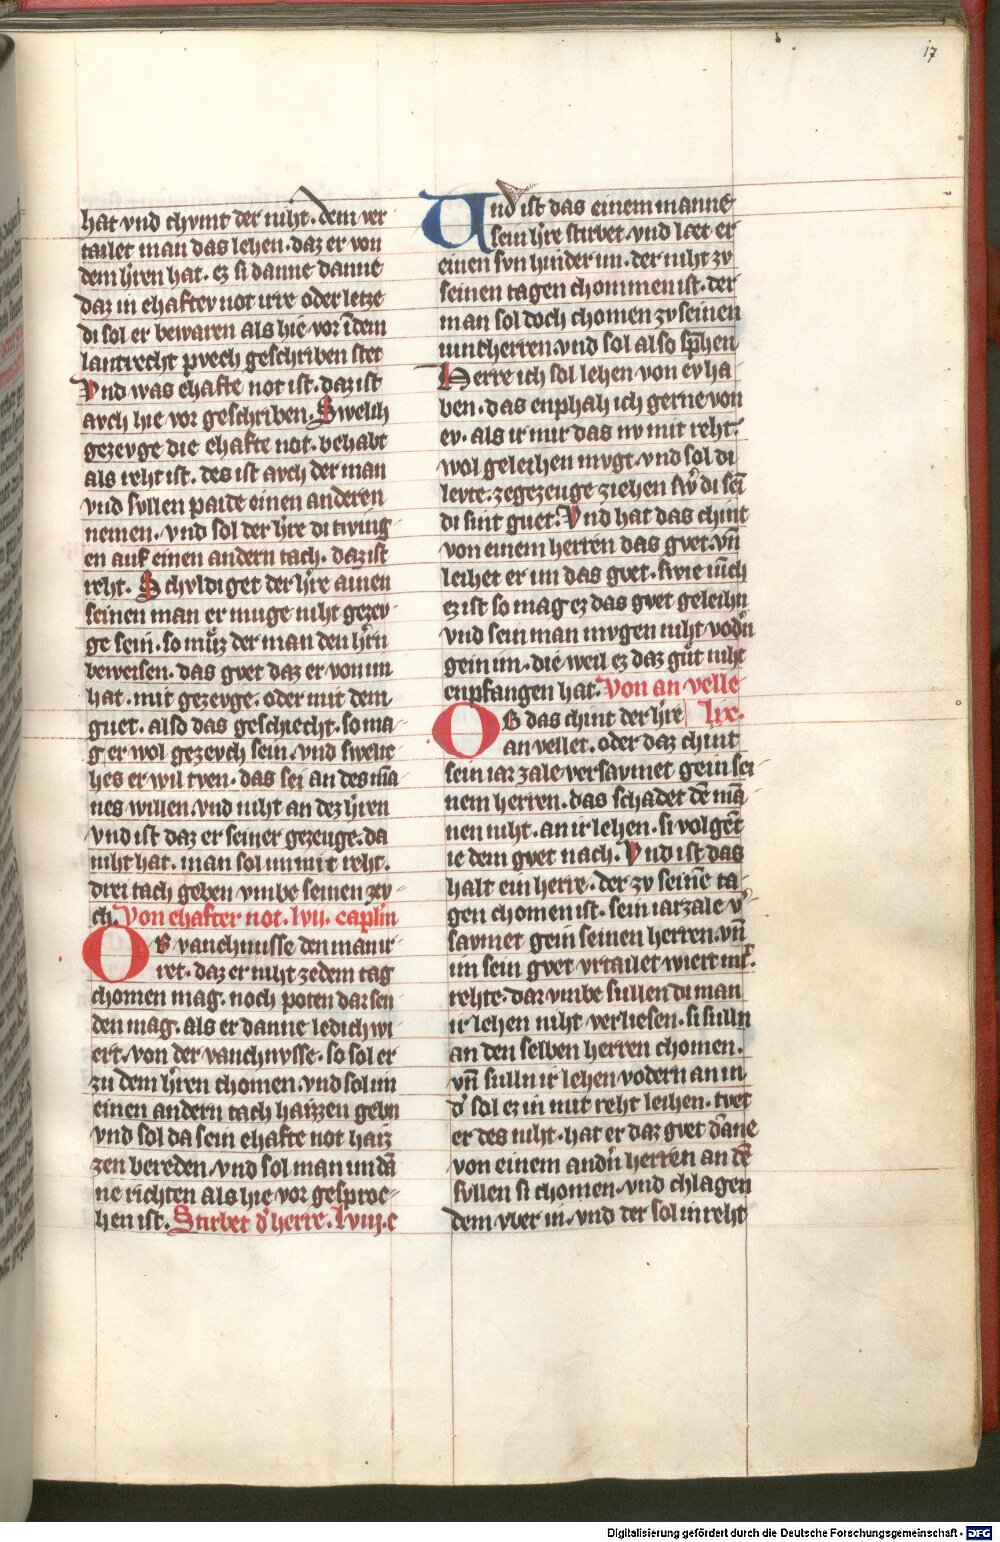 17
hat vnd chvmt der niht. dem ver
tailet man das lehen. daz er von
dem h̕ren hat. ez si danne danne
daz in ehaftev not irre oder letze
di sol er bewaren als hie vor ī dem
lantrecht pvech geschriben stet
Vnd was ehafte not ist. daz ist
avch hie vor geschriben. Swelih
gezevge die ehafte not. behabt
als reht ist. des ist avch der man
vnd svllen paide einen anderen
nemen. vnd sol der h̕re di twing
en auf einen andern tach. daz ist
reht. Schvldiget der h̕re ainen
seinen man er muge niht gezev
ge sein. so muͤz der man den h̕rn
beweisen. das gvet daz er von im
hat. mit gezevge. oder mit dem
guet. also das geschiecht. so ma
g er wol gezevch sein. vnd swelic
hes er wil tven. das sei an des mā
nes willen. vnd niht an dez h̕ren
vnd ist daz er seiner gezeuge. da
niht hat. man sol im mit reht.
drei tach geben vmbe seinen zev
ch. Von ehafter not. lvii. caplm
OB vanchnusse den man ir
ret. daz er niht ze dem tag
chomen mag. noch poten dar sen
den mag. als er danne ledich wi
ert. von der vanchnvsse. so sol er
zu dem h̕ren chomen. vnd sol im
einen andern tach haizzen gebn
vnd sol da sein ehafte not haiz
zen bereden. vnd sol man im dā
ne richten als hie vor gesproc
hen ist. Stirbet d̕ herre. lviij. c
Und ist das einem manne
sein h̕re stirbet. vnd læt er
einen svn hinder im. der niht zv
seinen tagen chommen ist. der
man sol doch chomen zv seinen
iuncherren. vnd sol also sp̄hen
Herre ich sol lehen von ev ha
ben. das enphah ich gerne von
ev. als ir mir das nv mit reht.
wol geleihen mvgt. vnd sol di
levte. ze gezeuge ziehen sw̕ di sei
di sint guet. Vnd hat das chint
von einem herren das gvet. vn̄
leihet er im das gvet. swie iūch
ez ist so mag ez das gvet geleihn
vnd sein man mvgen niht vod̕n
gein im. die weil ez daz guͤt niht
enpfangen hat. Von an velle
OB das chint der h̕re lix.
an vellet. oder daz chint
sein iar zale versavmet gein sei
nem herren. das schadet dē mā
nen niht. an ir lehen. si volgēt
ie dem gvet nach. Vnd ist das
halt ein herre. der zv seinē ta
gen chomen ist. sein iarzale v̕
savmet gein seinen herren. vn̄
im sein gvet vrtailet wiert mit
rehte. dar vmbe sullen di man
ir lehen niht verliesen. si sulln
an den selben herren chomen.
vn̄ sulln ir lehen vodern an in
d̕ sol ez in mit reht leihen. tvet
er des niht. hat er daz gvet dāne
von einem andn̕ herren an dē
svllen si chomen. vnd chlagen
dem vber in. vnd der sol in reht
Digitalisierung gefördert durch die Deutsche Forschungsgemeinschaft - DFG